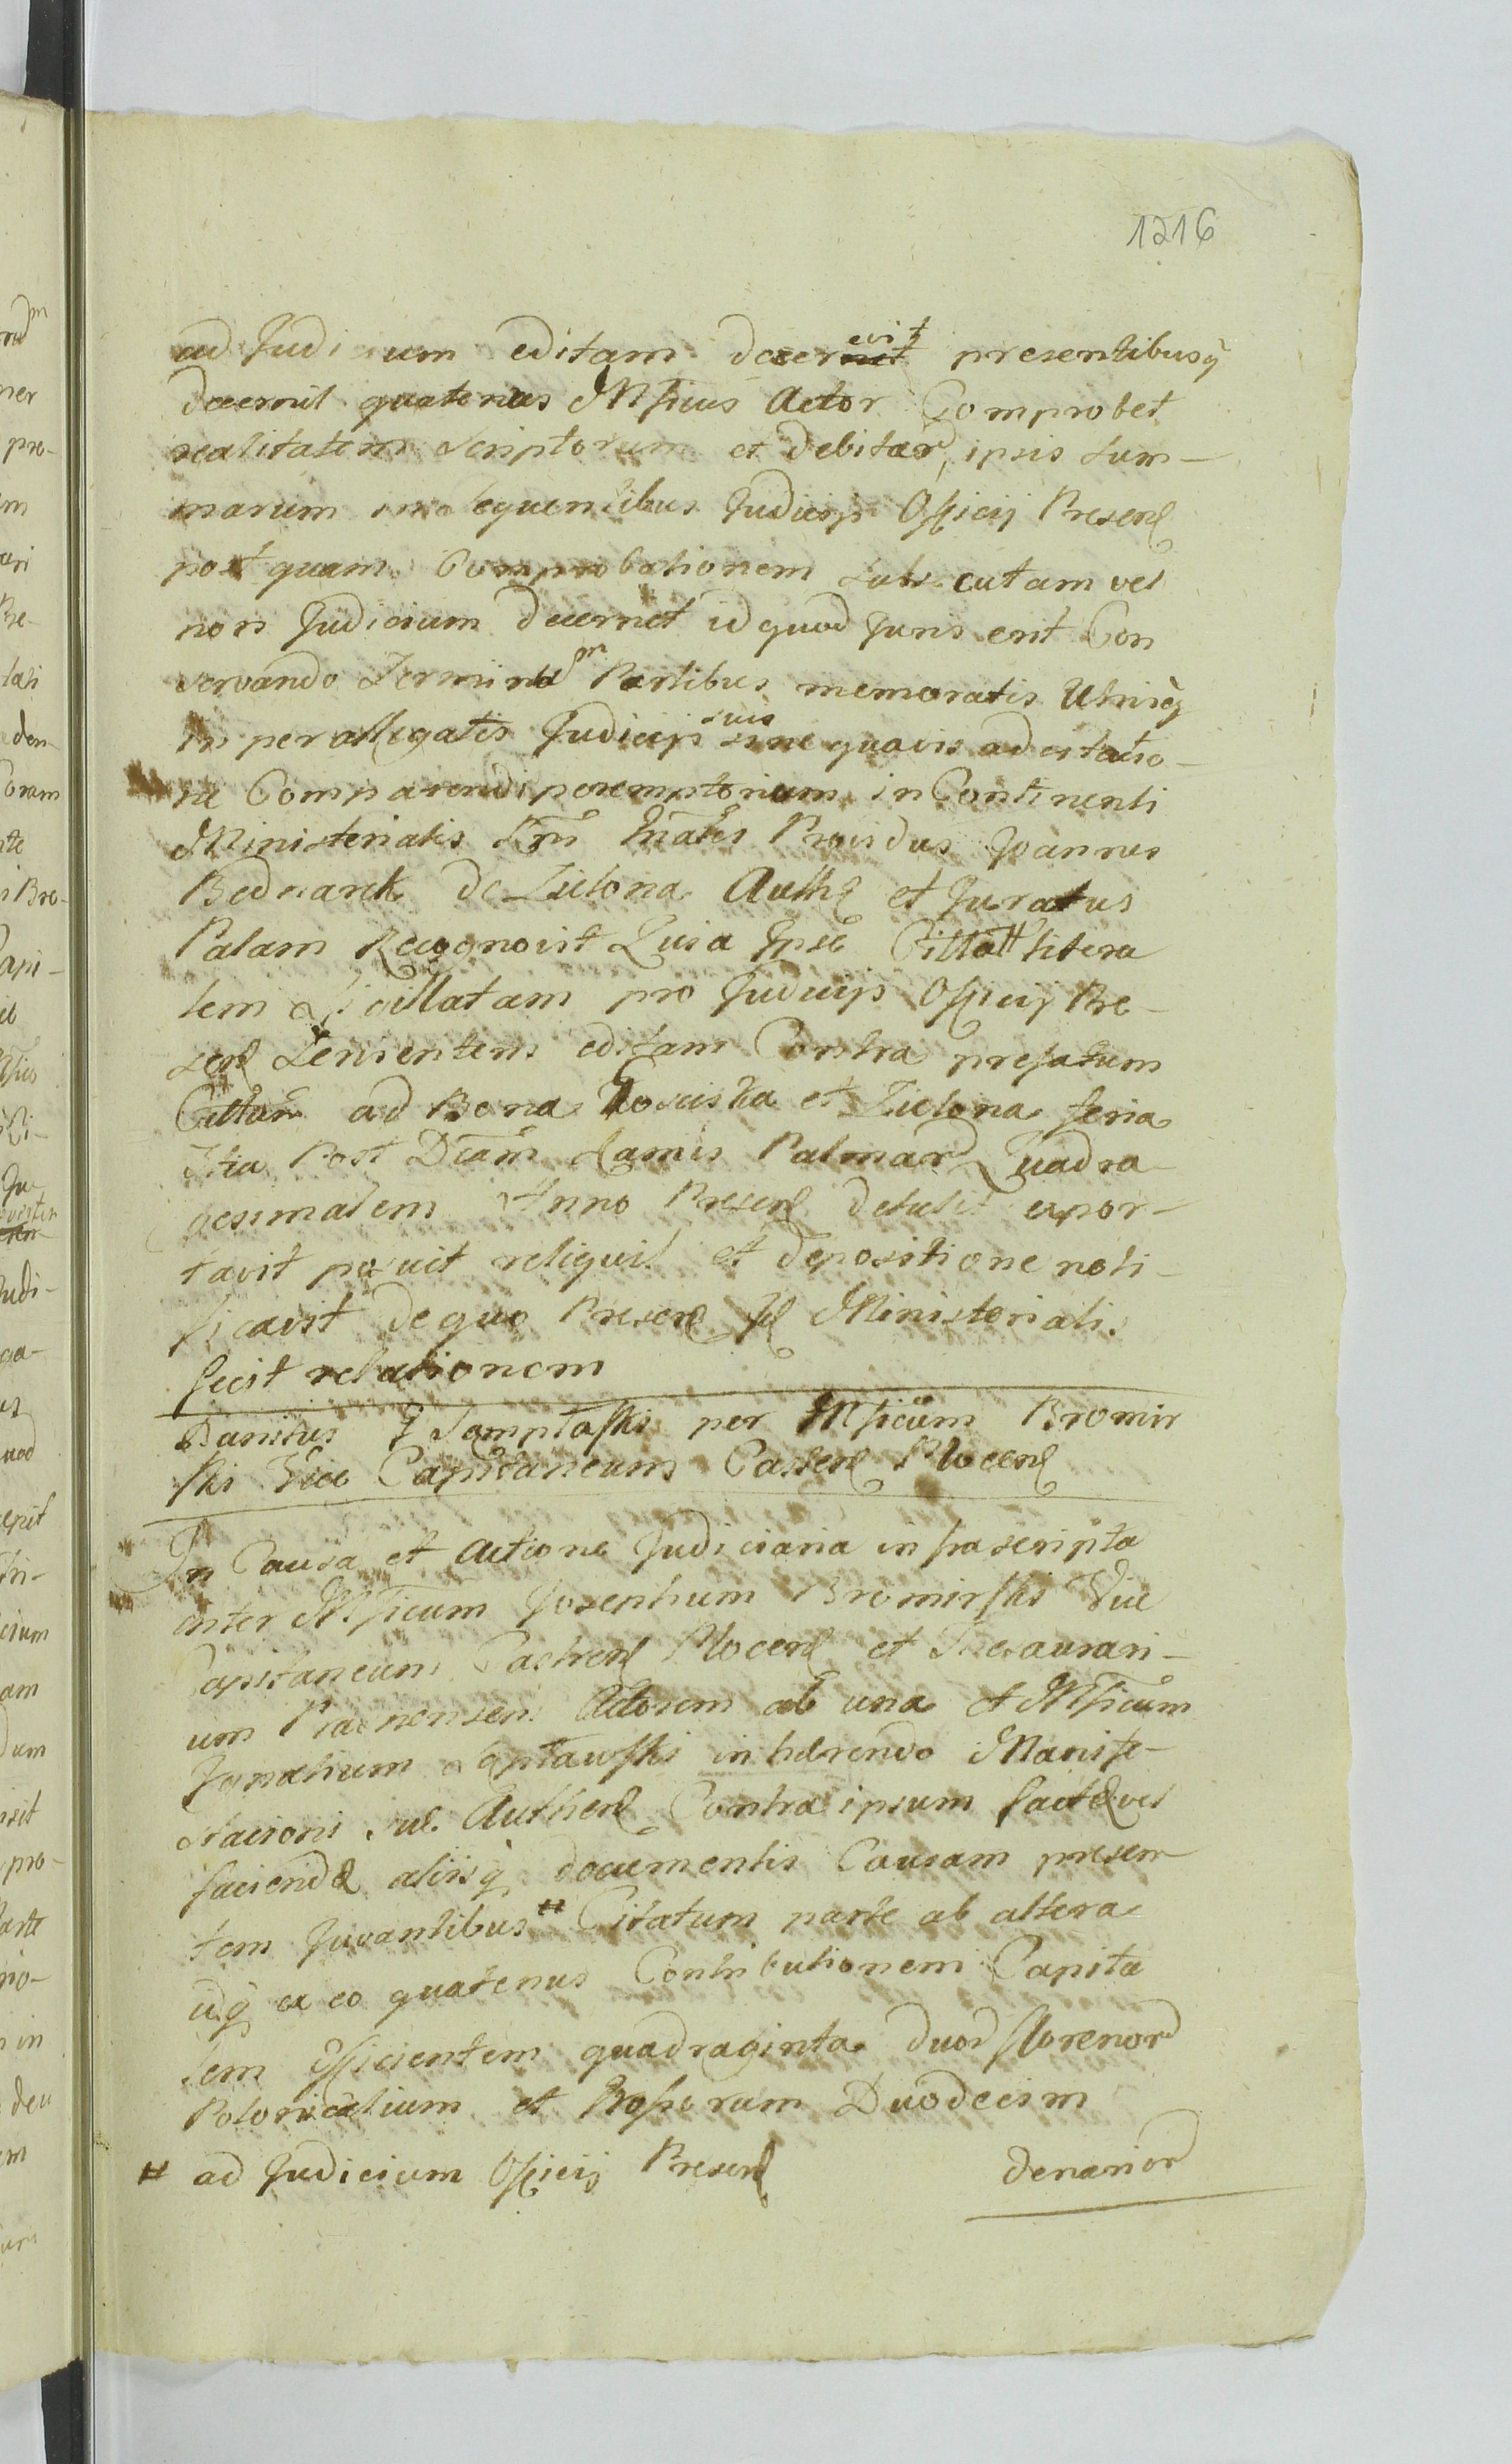 1216
ad Judicium editam decernit evit presentibusq
decernit quatenus Mficus Actor Comprobet
realitatem scriptorum et debitar ipsis sum-
marum in sequentibus Judicijs Officij Presen
post quam Comprobationem subsecutam vel
non Judicium decernet id quod Juris erit Con
servando Terminum Partibus memoratis Utrisq
in per allegatis Judicijs suis sine quavis adcitatio-
ne Comparendi peremptorium in Continenti
Ministerialis Providus Joannes
Bednarek de Zielona Auth et Juratus
Palam Recognovit Quia Ipse littera
lem Sigillatam pro Judicijs Officij Pre-
sen Servientem editam Contra prefatum
Cittatum ad Bona et Zielona feria
3tia Post Dnicam Ramis Palmar Quadra
gesimalem Anno Presen detulit expor-
tavit posuit reliquit et depositione noti-
ficavit de quo Presen Ministeriali
fecit relationem
Banitus per Mficum Bromir
ski Vice Capitaneum Castren Plocen
In Causa et actione Judiciaria infrascripta
inter Mficum Josephum Bromirski Vice
Capitaneum Castren Plocen et Thesaurari-
um Actorem ab una et Mficum
Ignatium inhærendo Manife-
stationi suæ Authen Contra ipsum factæ vel
faciendæ aliisq documentis Causam presen
tem Juvantibus # Citatum parte ab altera
idq ex eo quatenus Contributionem Capita
lem efficientem quadraginta duor florenor
Polonicalium et Grossorum Duodecim
# ad Judicium Officij Presen
denarior